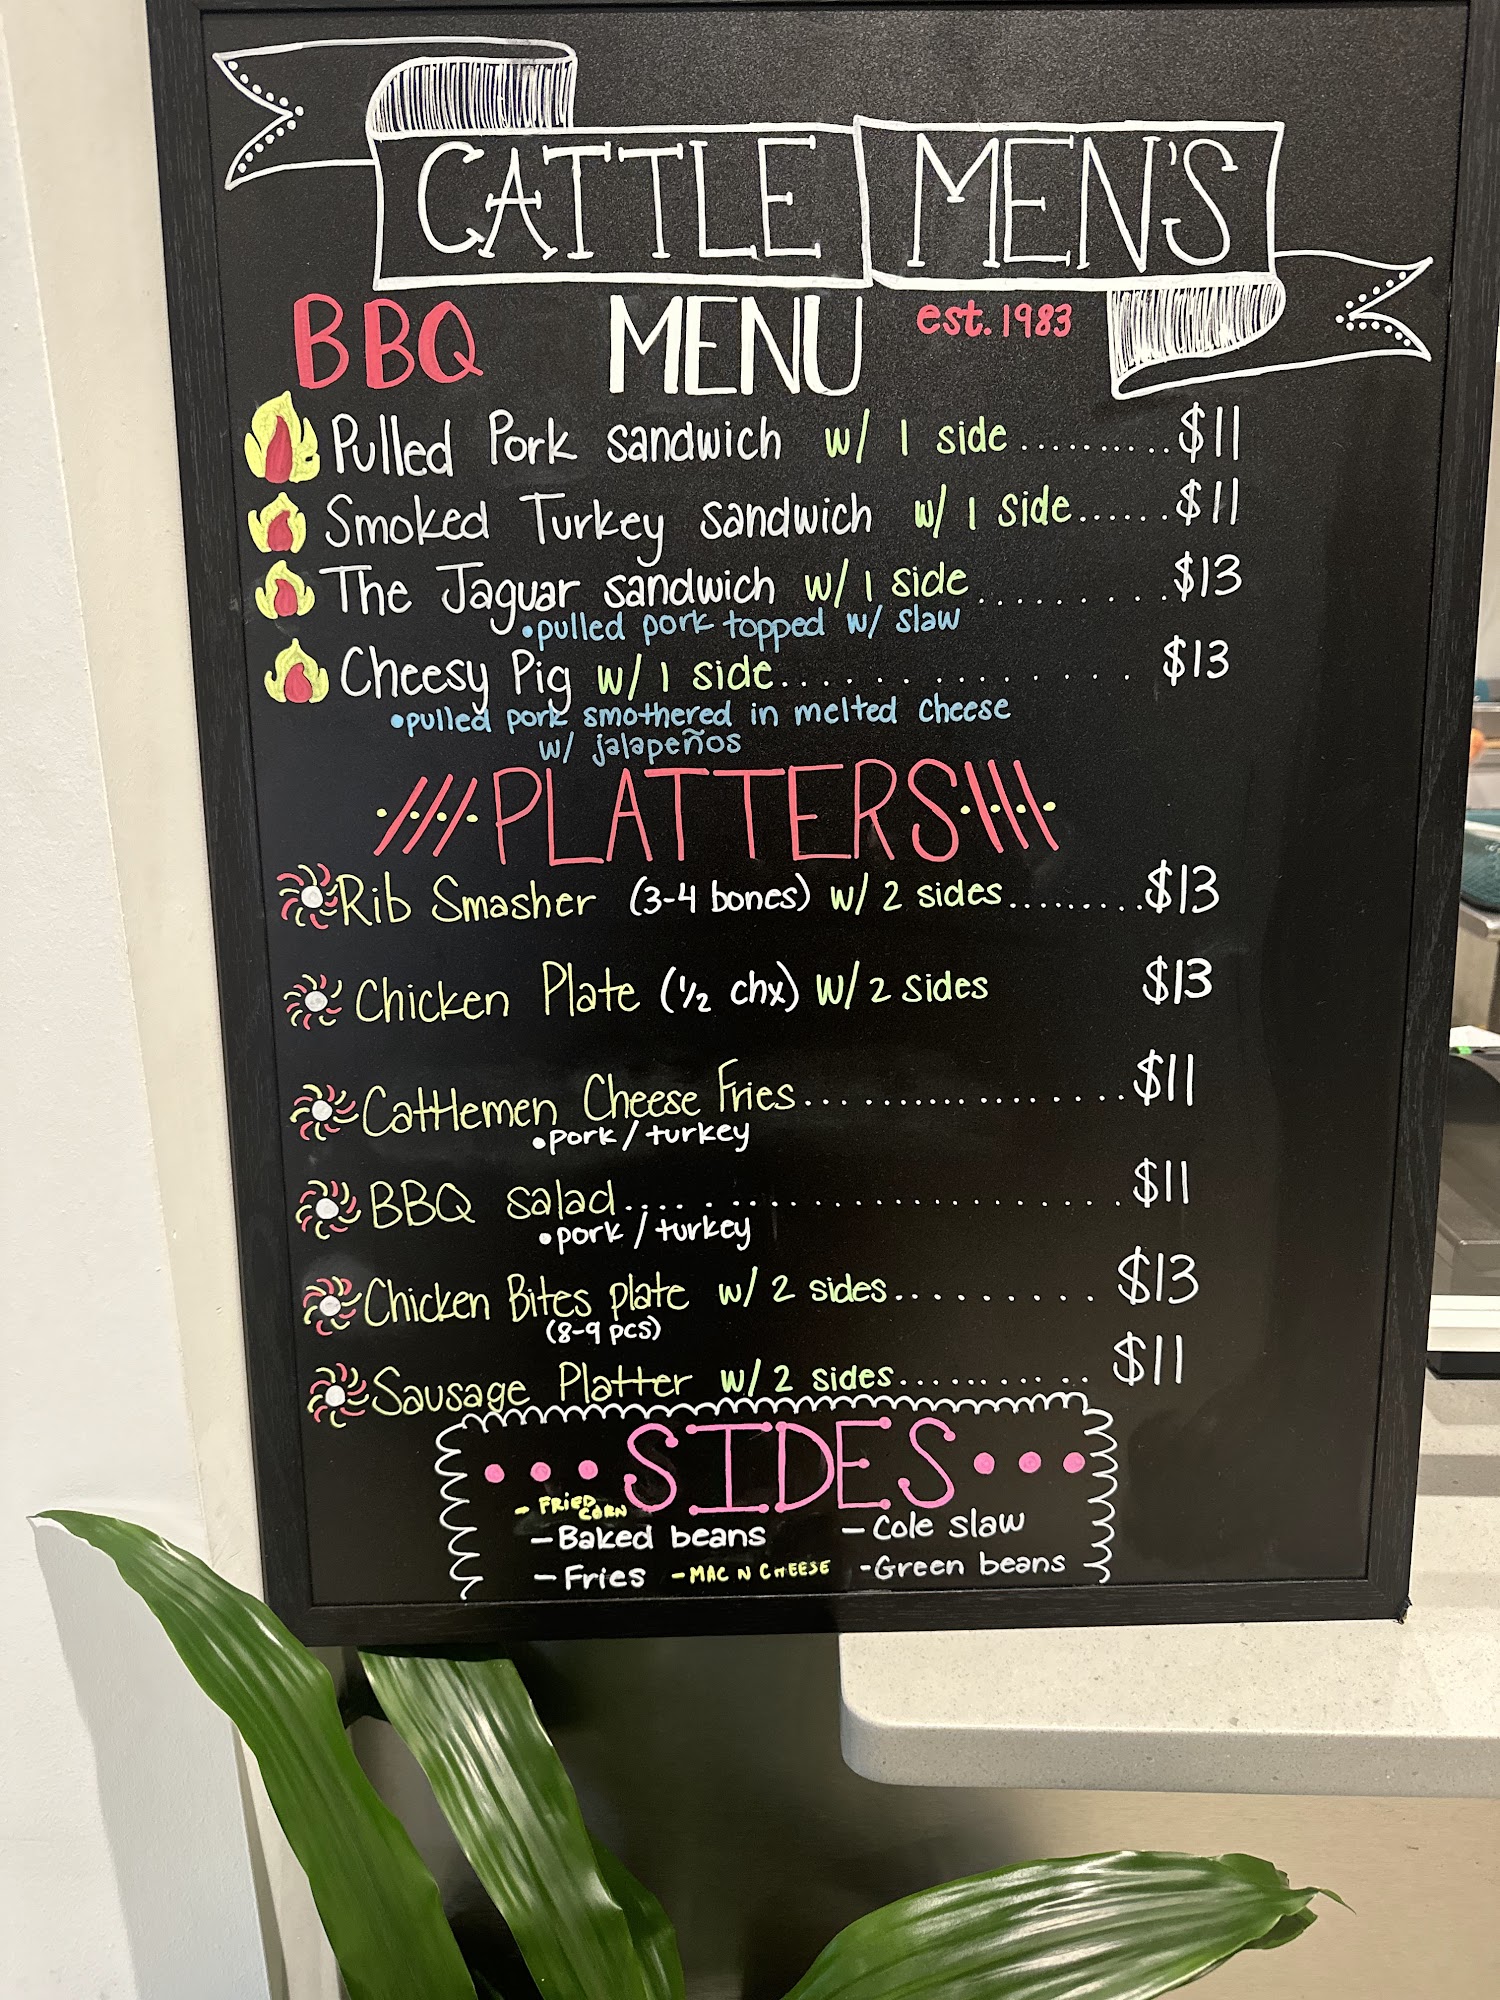 CATTLE MEN'S
BBQ MENU est. 1983
Pulled Pork sandwich w/ 1 side..........$11
Smoked Turkey sandwich w/ 1 side......$11
The Jaguar sandwich w/ 1 side.........$13
•pulled pork topped w/ slaw
Cheesy Pig w/ 1 side................$13
•pulled pork smothered in melted cheese
w/ jalapeños
PLATTERS
Rib Smasher (3-4 bones) w/ 2 sides.........$13
Chicken Plate (½ chx) w/ 2 sides $13
Cattlemen Cheese Fries..................$11
•pork/turkey
BBQ salad..........................$11
•pork/turkey
Chicken Bites plate w/ 2 sides..........$13
(8-9 pcs)
Sausage Platter w/ 2 sides...........$11
SIDES
- FRIED CORN
- Baked beans - Cole slaw
- Fries - MAC N CHEESE - Green beans